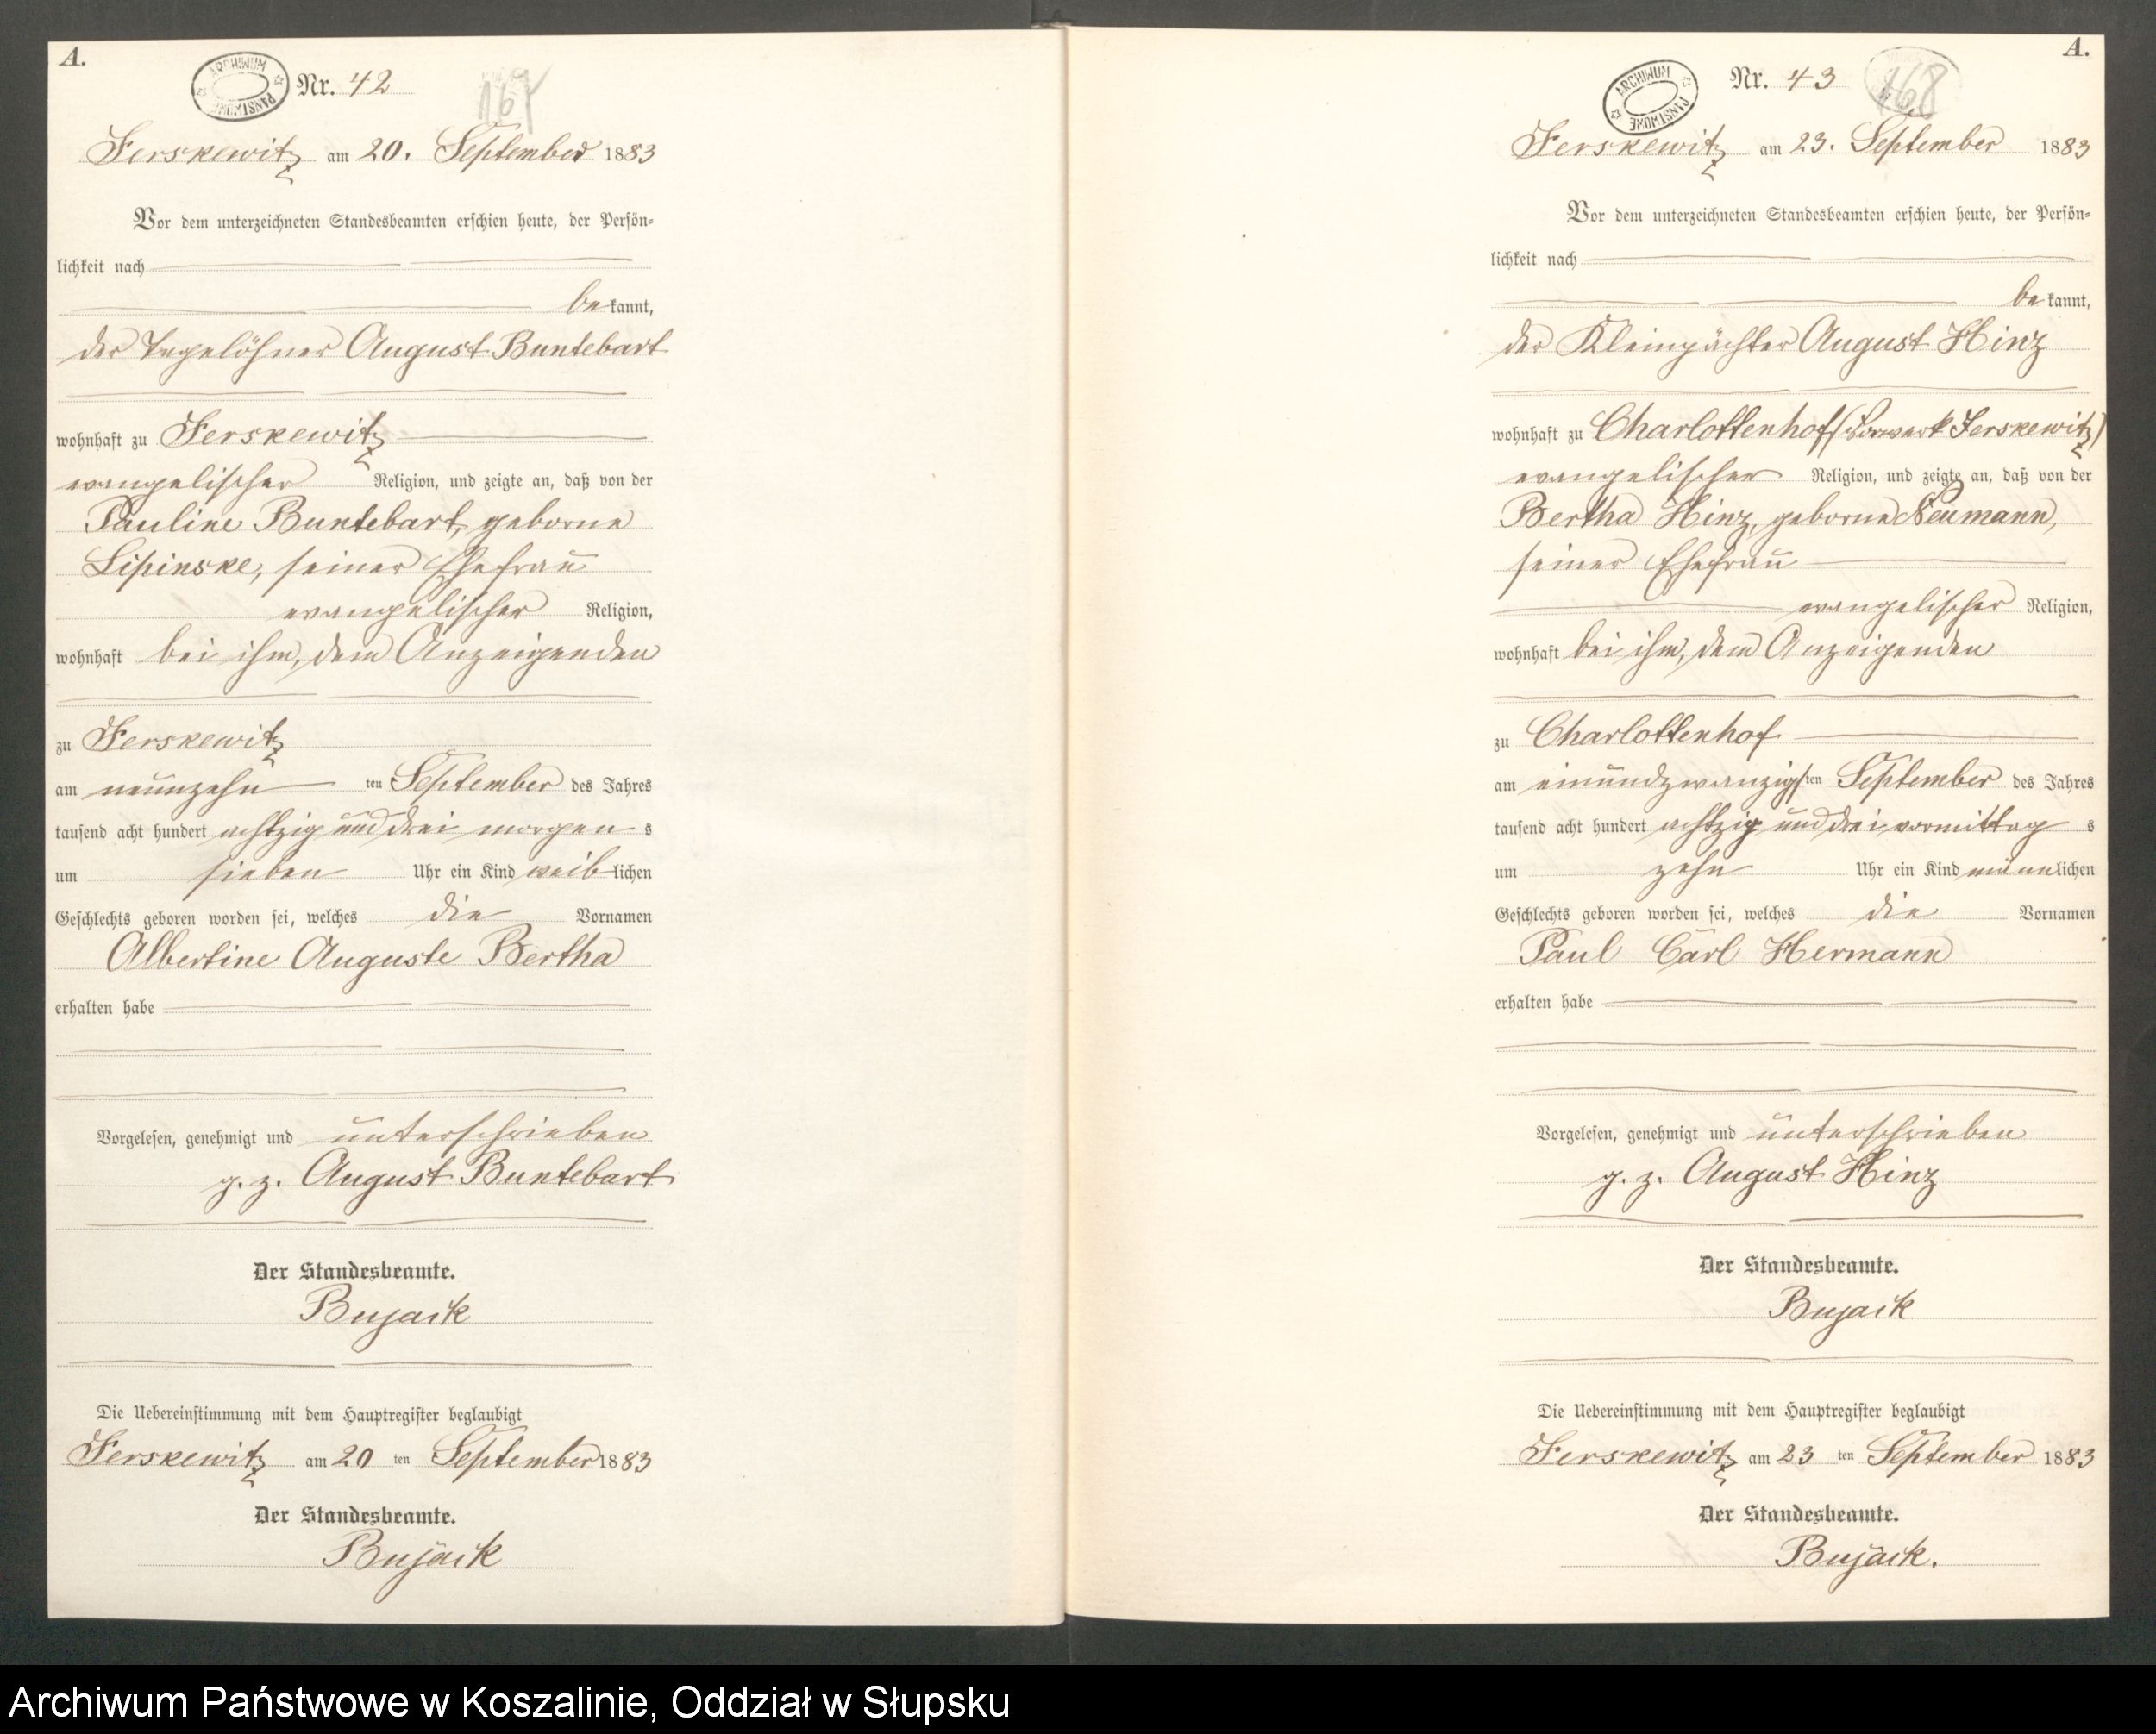 A.
ARCHIWUM PAŃSTWOWE
Nr. 42
167
Jerskewitz am 20. September 1883
Vor dem unterzeichneten Standesbeamten erschien heute, der Persön-
lichkeit nach
be kannt,
der Tagelöhner August Buntebart
wohnhaft zu Jerskewitz
evangelischer Religion, und zeigte an, daß von der
Pauline Buntebart, geborne
Lipinske, seiner Ehefrau
evangelischer Religion,
wohnhaft bei ihm, dem Anzeigenden
zu Jerskewitz
am neunzehn ten September des Jahres
tausend acht hundert achtzig und drei morgen s
um sieben Uhr ein Kind weib lichen
Geschlechts geboren worden sei, welches die Vornamen
Albertine Auguste Bertha
erhalten habe
Vorgelesen, genehmigt und unterschrieben
g. z. August Buntebart
Der Standesbeamte.
Bujack
Die Uebereinstimmung mit dem Hauptregister beglaubigt
Jerskewitz am 20 ten September 1883
Der Standesbeamte.
Bujack
A.
ARCHIWUM PAŃSTWOWE
Nr. 43
168
Jerskewitz am 23. September 1883
Vor dem unterzeichneten Standesbeamten erschien heute, der Persön-
lichkeit nach
be kannt,
der Kleinpächter August Hinz
wohnhaft zu Charlottenhof (Vorwerk Jerskewitz)
evangelischer Religion, und zeigte an, daß von der
Bertha Hinz, geborne Neumann,
seiner Ehefrau
evangelischer Religion,
wohnhaft bei ihm, dem Anzeigenden
zu Charlottenhof
am einundzwanzigs ten September des Jahres
tausend acht hundert achtzig und drei vormittag s
um zehn Uhr ein Kind männ lichen
Geschlechts geboren worden sei, welches die Vornamen
Paul Carl Hermann
erhalten habe
Vorgelesen, genehmigt und unterschrieben
g. z. August Hinz
Der Standesbeamte.
Bujack
Die Uebereinstimmung mit dem Hauptregister beglaubigt
Jerskewitz am 23 ten September 1883
Der Standesbeamte.
Bujack.
Archiwum Państwowe w Koszalinie, Oddział w Słupsku